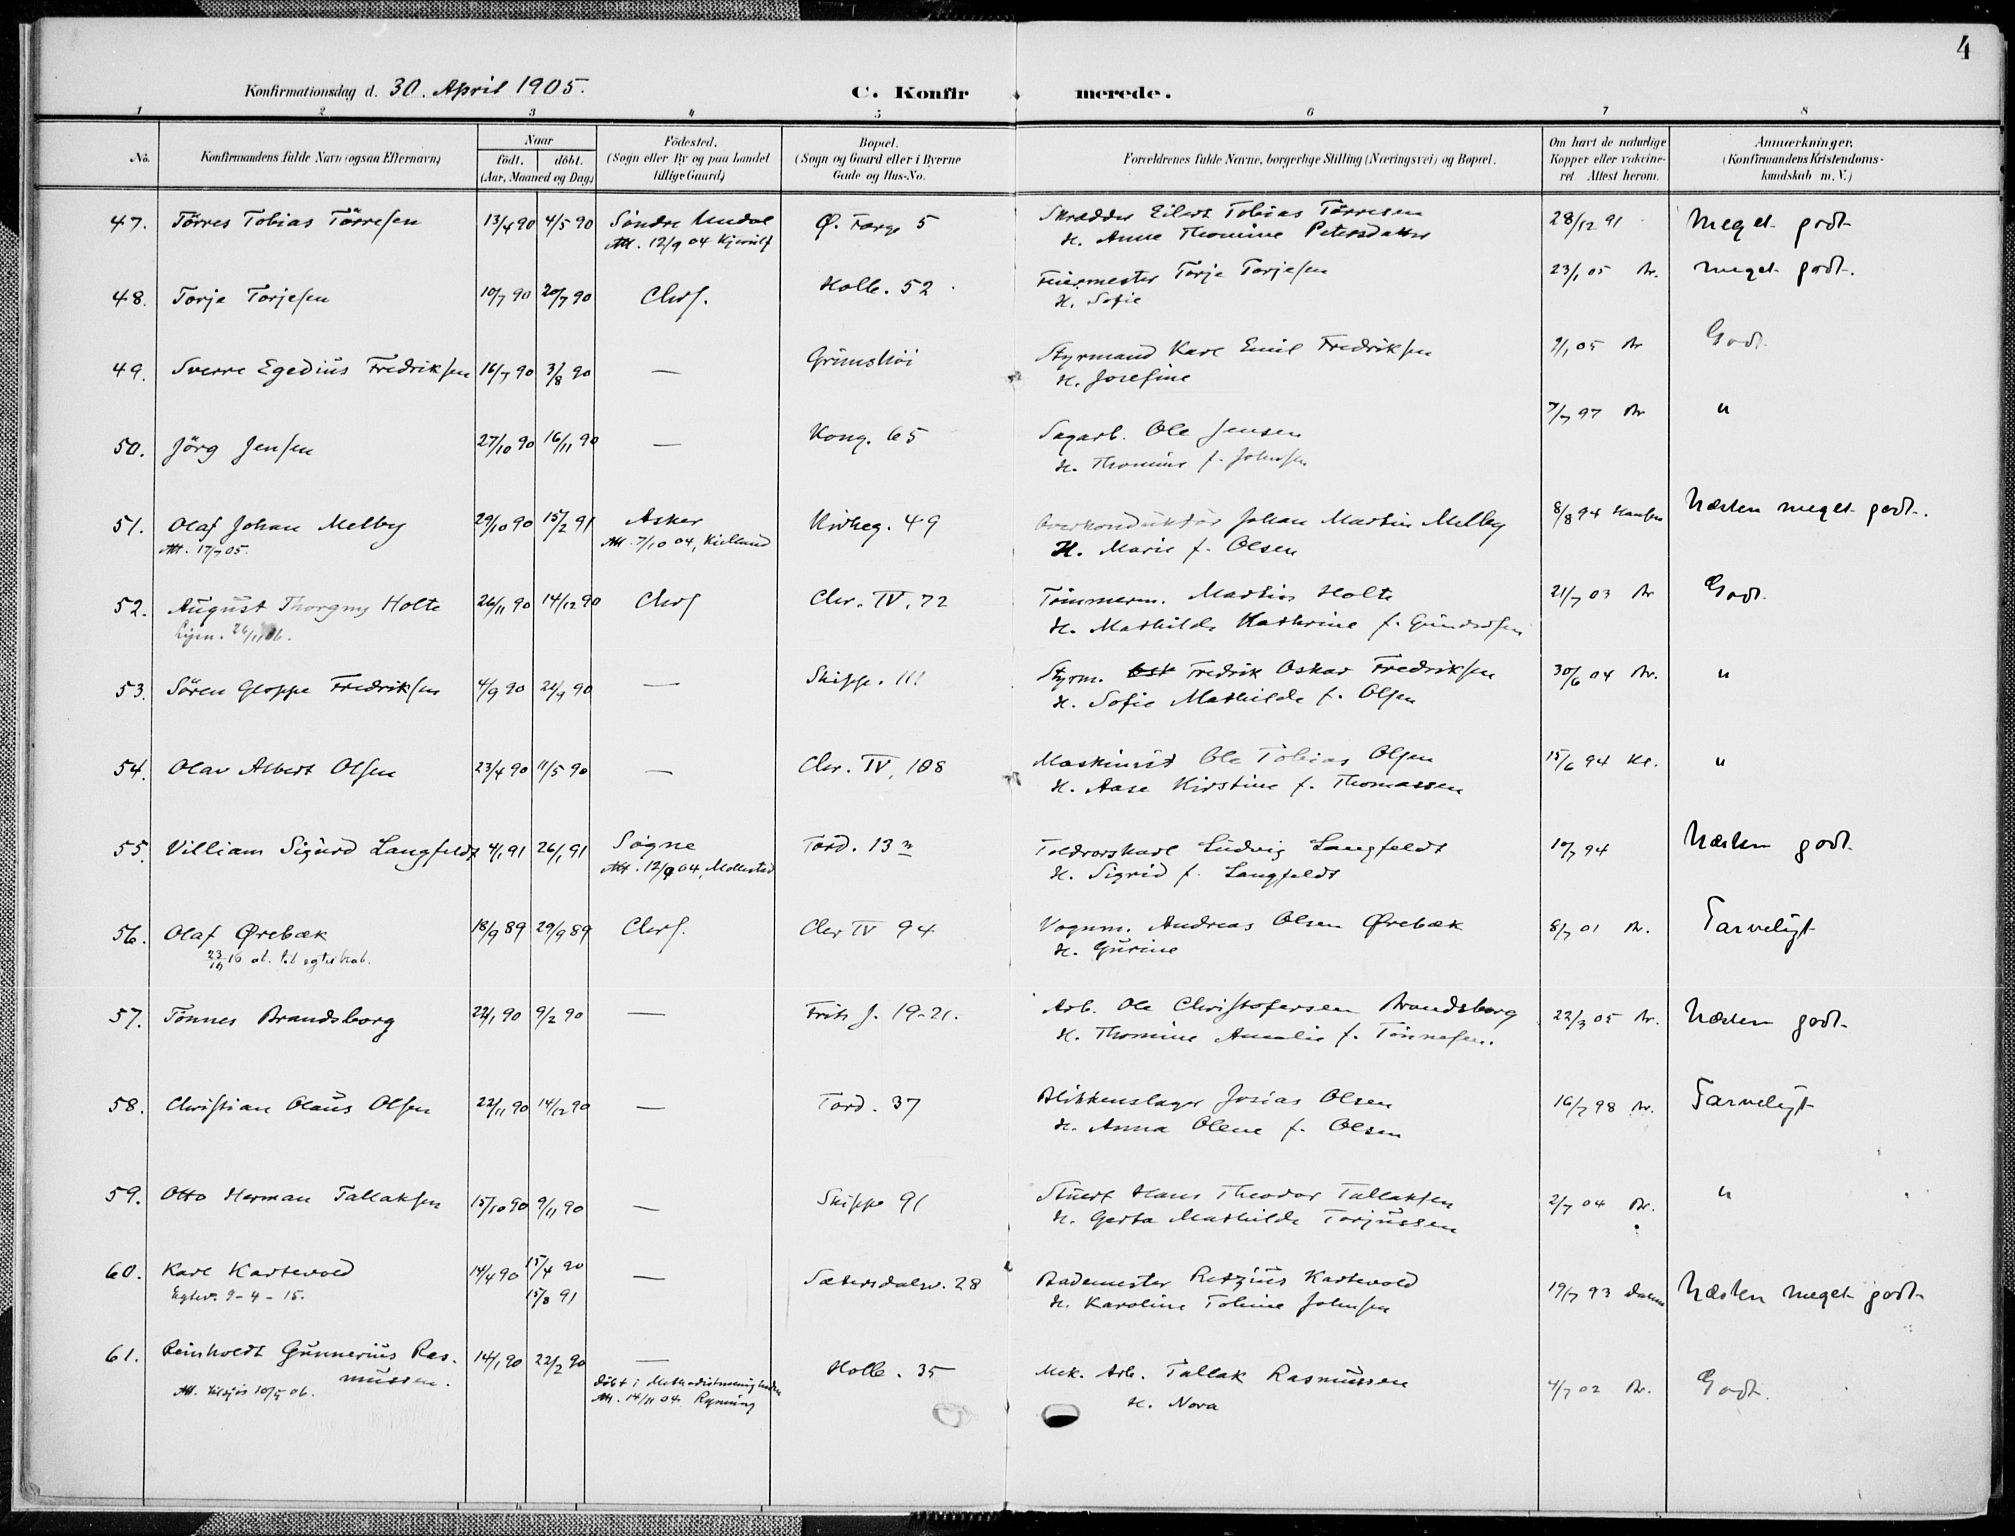 4
Konfirmationsdag d. 30. April 1905.
C. Konfirmerede.
1 2 3 4 5 6 7 8
No.
Konfirmandens fulde Navn (ogsaa Efternavn)
Naar
født. døbt.
(Aar, Maaned og Dag)
Fødested.
(Sogn eller By og paa Landet
tillige Gaard)
Bopæl.
(Sogn og Gaard eller i Byerne
Gade og Hus-No.
Forældrenes fulde Navne, borgerlige Stilling (Næringsvei) og Bopæl.
Om havt de naturlige
Kopper eller vakcine-
ret. Attest herom.
Anmærkninger.
(Konfirmandens Kristendoms-
kundskab m. V.)
47. Törres Tobias Törresen 13/4 90 4/5 90 Söndre Undal Ø. Færge 5 Skrædder Eilert Tobias Törresen 28/12 91 Meget godt
Att. 12/9 04 H. Anne Thomine Petersdatter
48. Torje Torjesen 10/7 90 20/7 90 Chrs. Holb. 52 Feiermester Torje Torjesen 23/1 05 Br. Meget godt.
H. Sofie
49. Sverre Egedius Fredriksen 16/7 90 3/8 90 — Grimshöi Styrmand Karl Emil Fredriksen 9/1 05 Br Godt.
H. Josefine
50. Jörg Jensen 27/10 90 16/11 90 — Kong. 65 Sagarb. Ole Jensen 7/7 97 Br "
H. Thomine f. Johnsen
51. Olaf Johan Melby 29/10 90 15/2 91 Asker Kirkeg. 49 Overkonduktör Johan Martin Melby 8/8 94 Hansen Næsten meget godt.
Att. 17/7 05. Att. 7/10 04, Kielland H. Marie f. Olsen
52. August Thorgny Holte 26/11 90 14/12 90 Chrs Chr. IV. 72 Tömmerm. Martin Holte 21/7 03 Br Godt.
26/11 06. H. Mathilde Kathrine f. Gundersen
53. Sören Gloppe Fredriksen 4/9 90 21/9 90 — Skippe. 111 Styrm. Fredrik Oskar Fredriksen 30/6 04 Br. "
H. Sofie Mathilde f. Olsen
54. Olav Albert Olsen 23/4 90 11/5 90 — Chr. IV, 108 Maskinist Ole Tobias Olsen 15/6 94 Kl. "
H. Aase Kirstine f. Thomassen
55. Villiam Sigurd Langfeldt 4/1 91 26/1 91 Søgne Tord. 13 Toldrorskarl Ludvig Langfeldt 10/7 94 Næsten godt
Att. 12/9 04, Mollestad H. Sigrid f. Langfeldt
56. Olaf Ørebæk 18/9 89 29/9 89 Chrs. Chr IV 94 Vognm. Andreas Olsen Ørebæk 8/7 01 Br. Tarveligt
at. til egteskab. H. Gurine
57. Tönnes Brandsborg 22/1 90 9/2 90 — Frits J. 19-21. Arb. Ole Christofersen Brandsborg 22/3 05 Br. Næsten godt
H. Thomine Amalie f. Tönnesen.
58. Christian Olaus Olsen 22/11 90 14/12 90 — Tord. 37 Blikkenslager Josias Olsen 16/7 98 Br. Tarveligt
H. Anna Olene f. Olsen
59. Otto Herman Tallaksen 15/10 90 9/11 90 — Skippe 91 Stuert Hans Theodor Tallaksen 2/7 04 Br. "
H. Gerta Mathilde Torjussen
60. Karl Kartevold 14/4 90 15/4 90 — Sætersdalsv. 28 Bademester Retzius Kartevold 19/7 93 Næsten meget godt
Egtev. 9-4-15. 15/8 91 H. Karoline Toline Johnsen
61. Reinholdt Gunnerius Ras- 14/1 90 22/2 90 — Holb. 35 Mek. Arb. Tallak Rasmussen 4/7 02 Br. Godt.
mussen. döbt i Methodistmenigheden H. Nora
Att. 10/5 06. Att. 14/11 04. Rynning